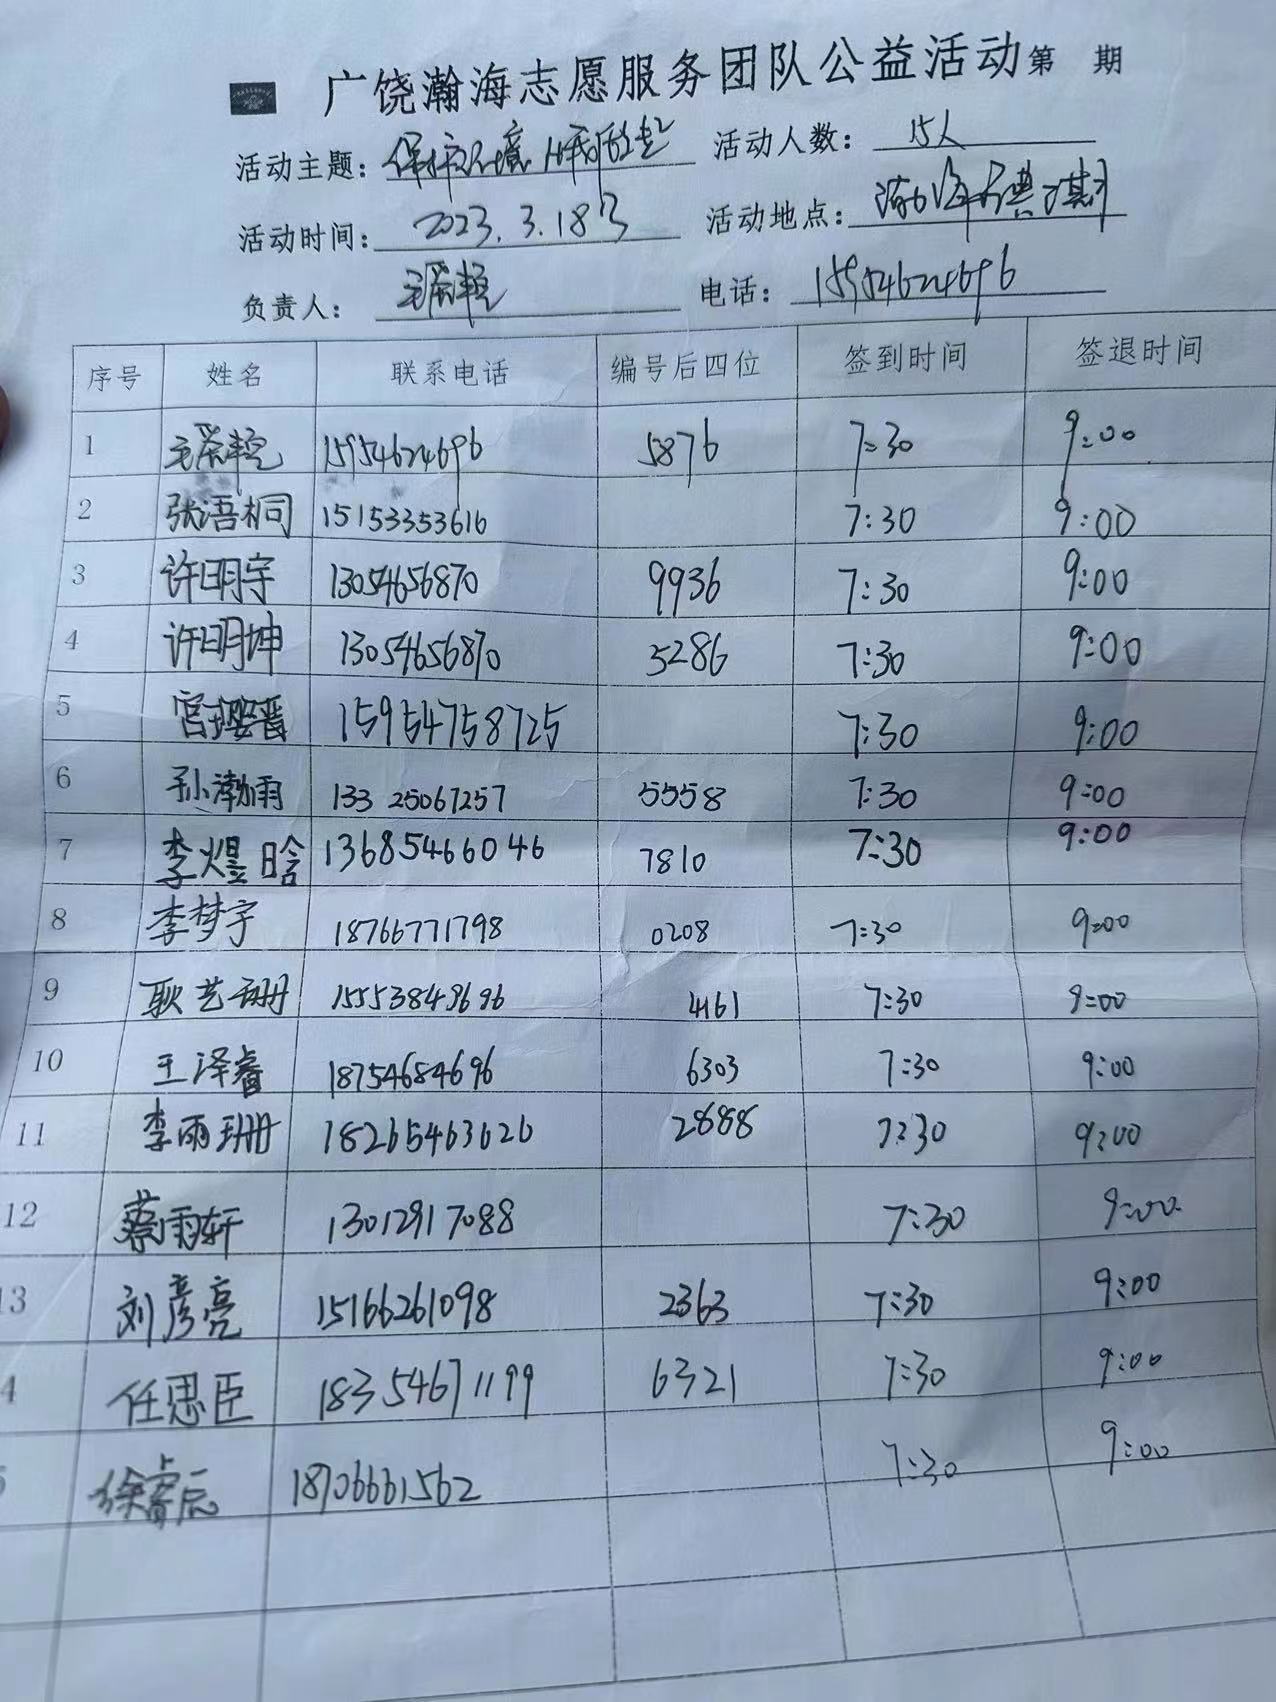 广饶瀚海志愿服务团队公益活动第 期
活动主题: 保护环境 从我做起 活动人数: 15人
活动时间: 2023.3.18号 活动地点:
负责人: 电话: 15954624696
序号 姓名 联系电话 编号后四位 签到时间 签退时间
1 15954624696 5876 7:30 9:00
2 张语桐 15153353616 7:30 9:00
3 许明宇 13054656870 9936 7:30 9:00
4 许明坤 13054656870 5286 7:30 9:00
5 宫璎晋 15954758725 7:30 9:00
6 孙渤雨 13325067257 5558 7:30 9:00
7 李煜晗 13685466046 7810 7:30 9:00
8 李梦宇 18766771798 0208 7:30 9:00
9 耿艺珊 15553849696 4161 7:30 9:00
10 王泽睿 18754684696 6303 7:30 9:00
11 李雨珊 18265463626 2888 7:30 9:00
12 蔡雨轩 13012917088 7:30 9:00
13 刘彦亮 15166261098 2363 7:30 9:00
4 任思臣 18354671199 6321 7:30 9:00
5 徐睿辰 18706661562 7:30 9:00